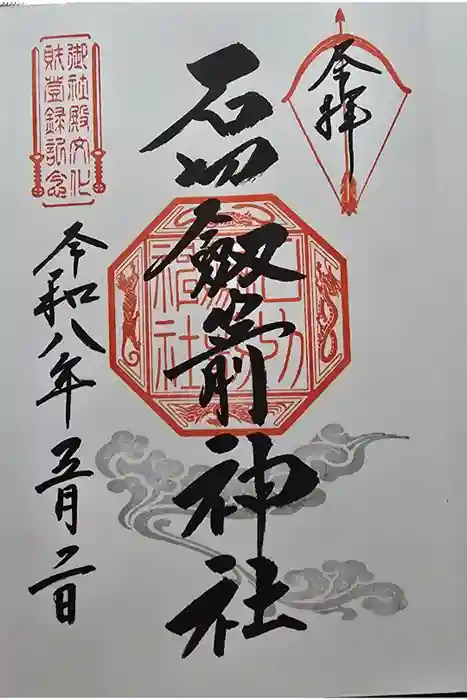 奉拝
石切劔箭神社
令和八年五月二日
御社殿文化
財登録記念